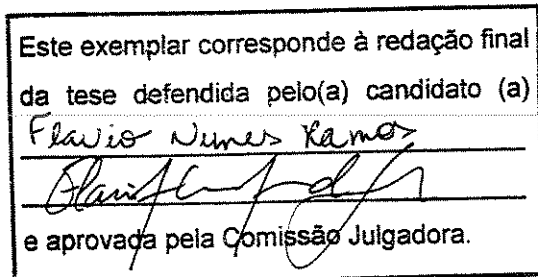 Este exemplar corresponde à redação final
da tese defendida pelo(a) candidato (a)
Flavio Nunes Ramos
e aprovada pela Comissão Julgadora.